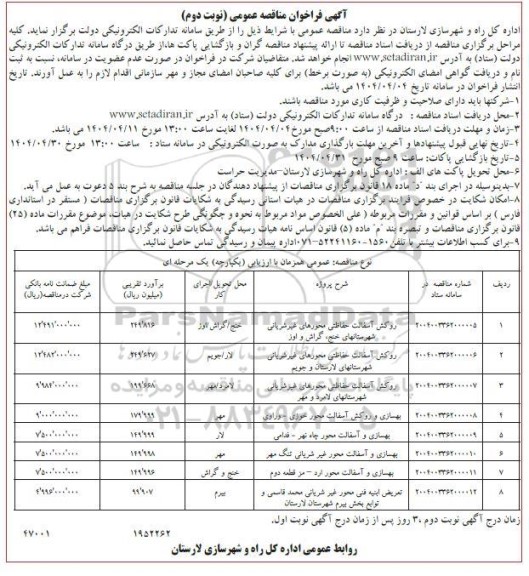 آگهی فراخوان مناقصه عمومی (نوبت دوم)
اداره کل راه و شهرسازی لارستان در نظر دارد مناقصه عمومی با شرایط ذیل را از طریق سامانه تدارکات الکترونیکی دولت برگزار نماید. کلیه
مراحل برگزاری مناقصه از دریافت اسناد مناقصه تا ارائه پیشنهاد مناقصه گران و بازگشایی پاکت ها، از طریق درگاه سامانه تدارکات الکترونیکی
دولت (ستاد) به آدرس www.setadiran.ir انجام خواهد شد. متقاضیان شرکت در فراخوان در صورت عدم عضویت در سامانه، نسبت به ثبت
نام و دریافت گواهی امضای الکترونیکی (به صورت برخط) برای کلیه صاحبان امضای مجاز و مهر سازمانی اقدام لازم را به عمل آورند. تاریخ
انتشار فراخوان در سامانه تاریخ ۱۴۰۴/۰۴/۰۴ می باشد.
۱-شرکتها باید دارای صلاحیت و ظرفیت کاری مورد مناقصه باشند.
۲-محل دریافت اسناد مناقصه : درگاه سامانه تدارکات الکترونیکی دولت (ستاد) به آدرس www.setadiran.ir
۳-زمان و مهلت دریافت اسناد مناقصه از ساعت ۹:۰۰ صبح مورخ ۱۴۰۴/۰۴/۰۴ لغایت ساعت ۱۳:۰۰ مورخ ۱۴۰۴/۰۴/۱۱ می باشد.
۴-تاریخ نهایی قبول پیشنهادها و آخرین مهلت بارگذاری مدارک به صورت الکترونیکی در سامانه ستاد : ساعت ۱۳:۰۰ مورخ ۱۴۰۴/۰۴/۳۰
۵-تاریخ بازگشایی پاکات: ساعت ۹ صبح مورخ ۱۴۰۴/۰۴/۳۱
۶-محل تحویل پاکت های الف : اداره کل راه و شهرسازی لارستان-مدیریت حراست
۷-بدینوسیله در اجرای بند "د" ماده ۱۸ قانون برگزاری مناقصات از پیشنهاد دهندگان در جلسه مناقصه به شرح بند ۵ دعوت به عمل می آید.
۸-امکان شکایت در خصوص فرایند برگزاری مناقصات در هیات استانی رسیدگی به شکایات قانون برگزاری مناقصات ( مستقر در استانداری
فارس ) بر اساس قوانین و مقررات مربوطه ( علی الخصوص مواد مربوط به نحوه و چگونگی طرح شکایت در هیات، موضوع مقررات ماده (۲۵)
قانون برگزاری مناقصات و تبصره بند "م" ماده (۵) قانون اساس نامه هیات رسیدگی به شکایات قانون برگزاری مناقصات فراهم می باشد.
۹-برای کسب اطلاعات بیشتر با تلفن ۱۵۶۰-۵۲۲۴۱۱۶۰-۰۷۱ اداره پیمان و رسیدگی تماس حاصل نمائید.
نوع مناقصه: عمومی همزمان با ارزیابی (یکپارچه) یک مرحله ای
ردیف شماره مناقصه در سامانه ستاد شرح پروژه محل تحویل اجرای کار برآورد تقریبی (میلیون ریال) مبلغ ضمانت نامه بانکی شرکت درمناقصه(ریال)
۱ ۲۰۰۴۰۰۳۳۶۲۰۰۰۰۰۵ روکش آسفالت حفاظتی محورهای غیرشریانی شهرستانهای خنج، گراش و اوز خنج/گراش/اوز ۲۴۹٬۸۱۶ ۱۲٬۴۹۱٬۰۰۰٬۰۰۰
۲ ۲۰۰۴۰۰۳۳۶۲۰۰۰۰۰۶ روکش آسفالت حفاظتی محورهای غیرشریانی شهرستانهای لارستان و جویم لار/جویم ۲۴۹٬۶۲۷ ۱۲٬۴۸۲٬۰۰۰٬۰۰۰
۳ ۲۰۰۴۰۰۳۳۶۲۰۰۰۰۰۷ روکش آسفالت حفاظتی محورهای غیرشریانی شهرستانهای لامرد و مهر لامرد/مهر ۱۹۹٬۶۶۸ ۹٬۹۸۴٬۰۰۰٬۰۰۰
۴ ۲۰۰۴۰۰۳۳۶۲۰۰۰۰۰۸ بهسازی و روکش آسفالت محور خوزی - وراوی مهر ۱۷۹٬۹۹۹ ۹٬۰۰۰٬۰۰۰٬۰۰۰
۵ ۲۰۰۴۰۰۳۳۶۲۰۰۰۰۰۹ بهسازی و آسفالت محور چاه نهر - فدامی لار ۱۴۹٬۹۹۹ ۷٬۵۰۰٬۰۰۰٬۰۰۰
۶ ۲۰۰۴۰۰۳۳۶۲۰۰۰۰۱۰ بهسازی و آسفالت محور غیر شریانی تنگ مهر مهر ۱۴۹٬۹۹۸ ۷٬۵۰۰٬۰۰۰٬۰۰۰
۷ ۲۰۰۴۰۰۳۳۶۲۰۰۰۰۱۱ بهسازی و آسفالت محور ارد - مز قطعه دوم خنج و گراش ۱۴۹٬۹۹۶ ۷٬۵۰۰٬۰۰۰٬۰۰۰
۸ ۲۰۰۴۰۰۳۳۶۲۰۰۰۰۱۲ تعریض ابنیه فنی محور غیر شریانی محمد قاسمی و توابع بخش بیرم شهرستان لارستان بیرم ۹۹٬۹۰۷ ۴٬۹۹۶٬۰۰۰٬۰۰۰
زمان درج آگهی نوبت دوم ،۳ روز پس از زمان درج آگهی نوبت اول.
۱۹۵۲۲۶۲ ۴۷۰۰۱
روابط عمومی اداره کل راه و شهرسازی لارستان